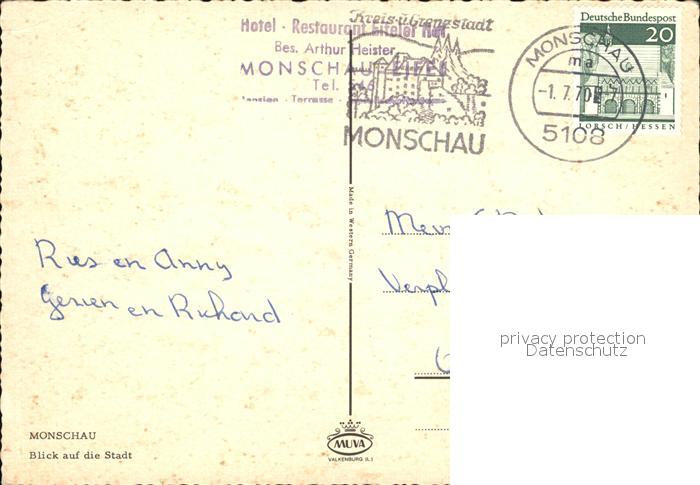 Hotel · Restaurant Eifeler Hof
Bes. Arthur Heister
MONSCHAU EIFEL
Tel.
Pension · Terrasse ·
Kreis-u.Grenzstadt
MONSCHAU
MONSCHAU
ma
-1.7.70
5108
Deutsche Bundespost
20
LORSCH/HESSEN
Made in Western Germany
Ries en Anny
Gerrien en Richard
privacy protection
Datenschutz
MONSCHAU
Blick auf die Stadt
MUVA
VALKENBURG (L.)